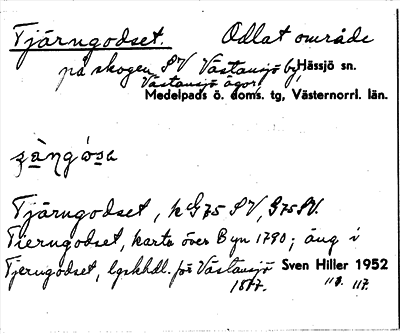 Tjärngodset. Odlat område
på skogen SV Västansjö by, Hässjö sn.
Västansjö ägor,
Medelpads ö. doms. tg, Västernorrl. län.
Tjärngodset, kG75 SV, G75SV.
Tierngodset, karta över Byn 1790; äng i
Tjerngodset, lgskhdl. för Västansjö Sven Hiller 1952
1877. 110. 117.